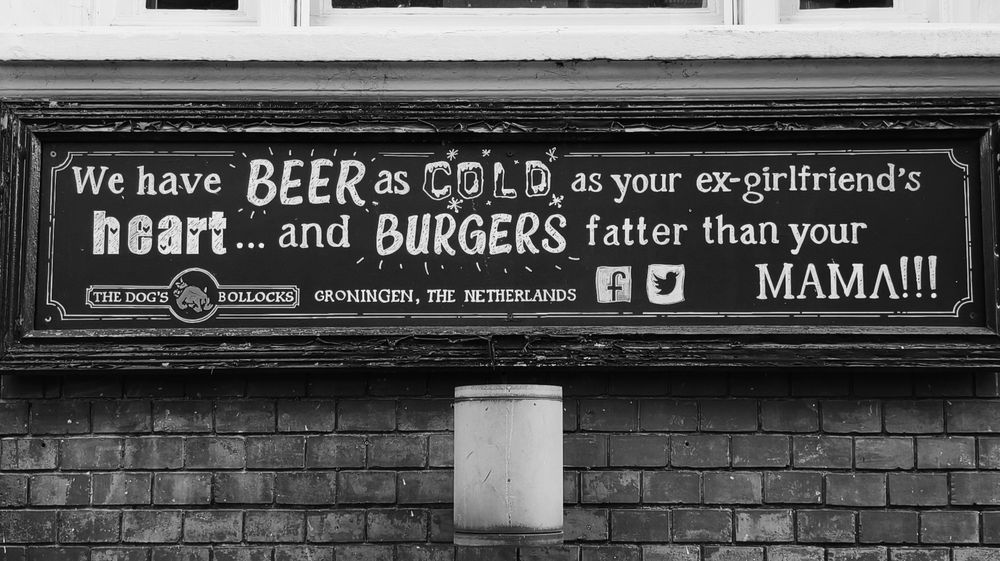 We have BEER as COLD as your ex-girlfriend's
heart... and BURGERS fatter than your
MAMA!!!
THE DOG'S BOLLOCKS GRONINGEN, THE NETHERLANDS f